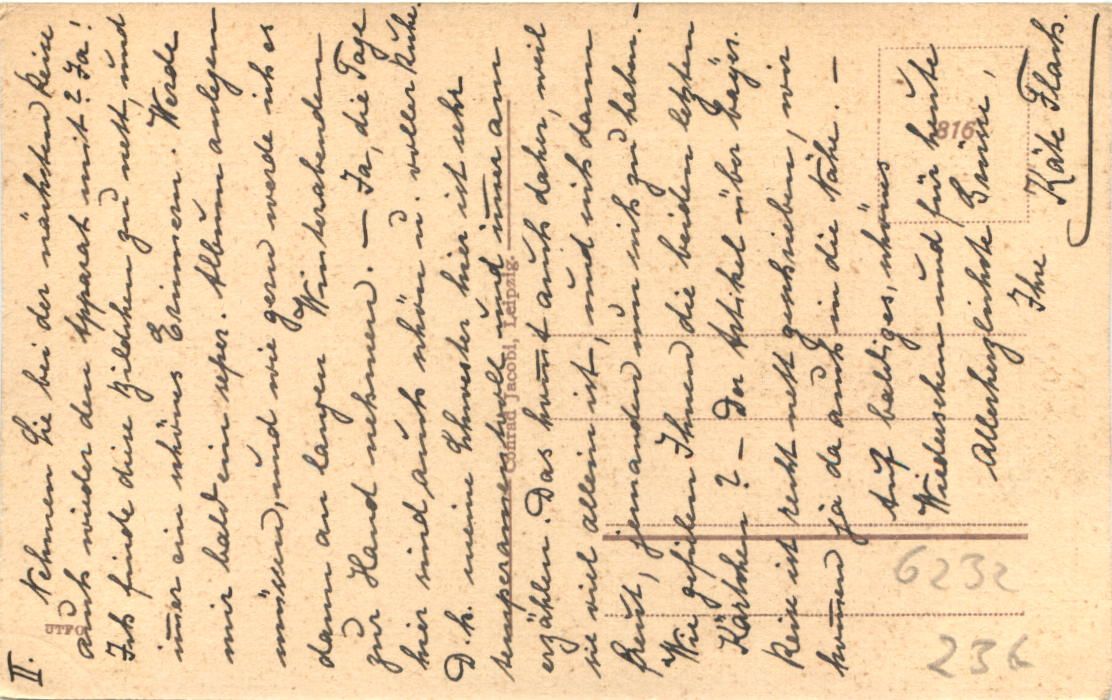 II.
Nehmen Sie bei der nächsten Reise
auch wieder den Apparat mit? Ja!
Ich finde diese Bildchen zu nett, und
im̅er ein schönes Erinnern. Werde
mir bald ein sepor. Album anlegen
müssen, und wie gern werde ich es
dann an langen Winterabenden
zur Hand nehmen. — Ja, die Tage
hier sind auch schön u. voller Ruhe.
D. h. meine Schwester hier ist sehr
temperamentvoll und im̅er am
erzählen. Das kom̅t auch daher, weil
sie viel allein ist, und sich dann
freut, jemanden um sich zu haben. —
Wie gefielen Ihnen die beiden letzten
Kärtchen? — Der Artikel über bayer.
Reise ist recht nett geschrieben, wir
kom̅en ja da auch in die Nähe. —
Auf baldiges, schönes
Wiedersehen und für heute
Allerherzlichste Grüsse,
Ihre
Käte Flach.
UTFO
Conrad Jacobi, Leipzig.
816
6232
236